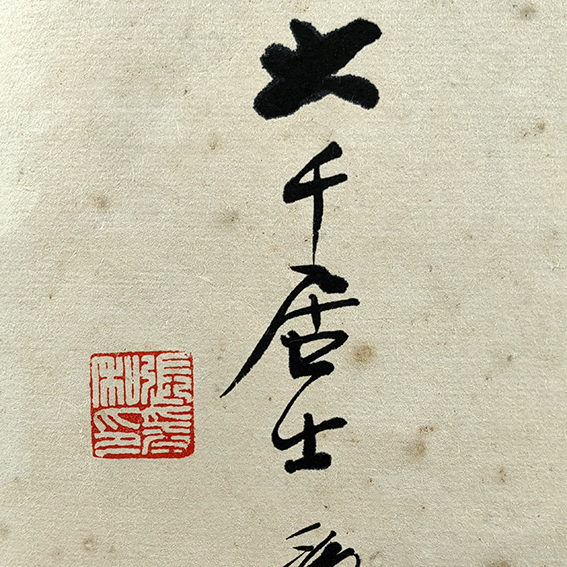 大千居士
張爰私印